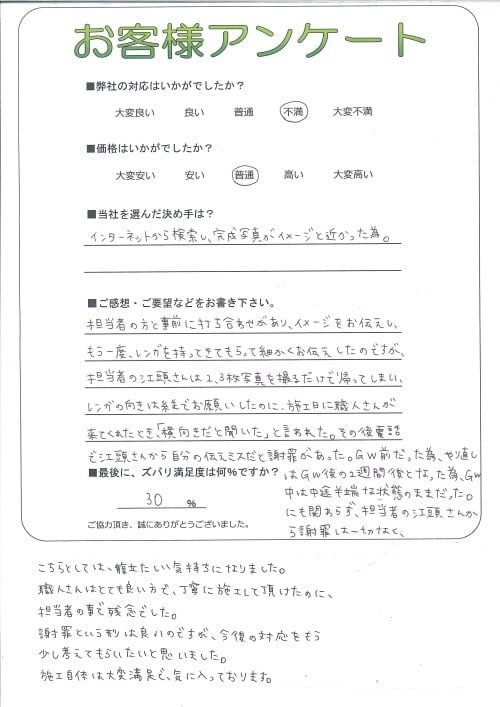 お客様アンケート
■弊社の対応はいかがでしたか？
大変良い 良い 普通 不満 大変不満
■価格はいかがでしたか？
大変安い 安い 普通 高い 大変高い
■当社を選んだ決め手は？
インターネットから検索し、完成写真がイメージと近かった為。
■ご感想・ご要望などをお書き下さい。
担当者の方と事前に打ち合わせがあり、イメージをお伝えし、
もう一度、レンガを持ってきてもらって細かくお伝えしたのですが、
担当者の江頭さんは2,3枚写真を撮るだけで帰ってしまい、
レンガの向きは縦でお願いしたのに、施工日に職人さんが
来てくれたとき、「横向きだと聞いた」と言われた。その後電話
で江頭さんから自分の伝えミスだと謝罪があった。GW前だった為、やり直し
はGW後の2週間後となった為、GW
中は中途半端な状態のままだった。
にも関わらず、担当者の江頭さんか
ら謝罪は一切なく、
■最後に、ズバリ満足度は何%ですか？
30 %
ご協力頂き、誠にありがとうございました。
こちらとしては、腹立たしい気持ちになりました。
職人さんはとても良い方で、丁寧に施工して頂けたのに、
担当者の事で残念でした。
謝罪という形は良いのですが、今後の対応をもう
少し考えてもらいたいと思いました。
施工自体は大変満足で、気に入っております。